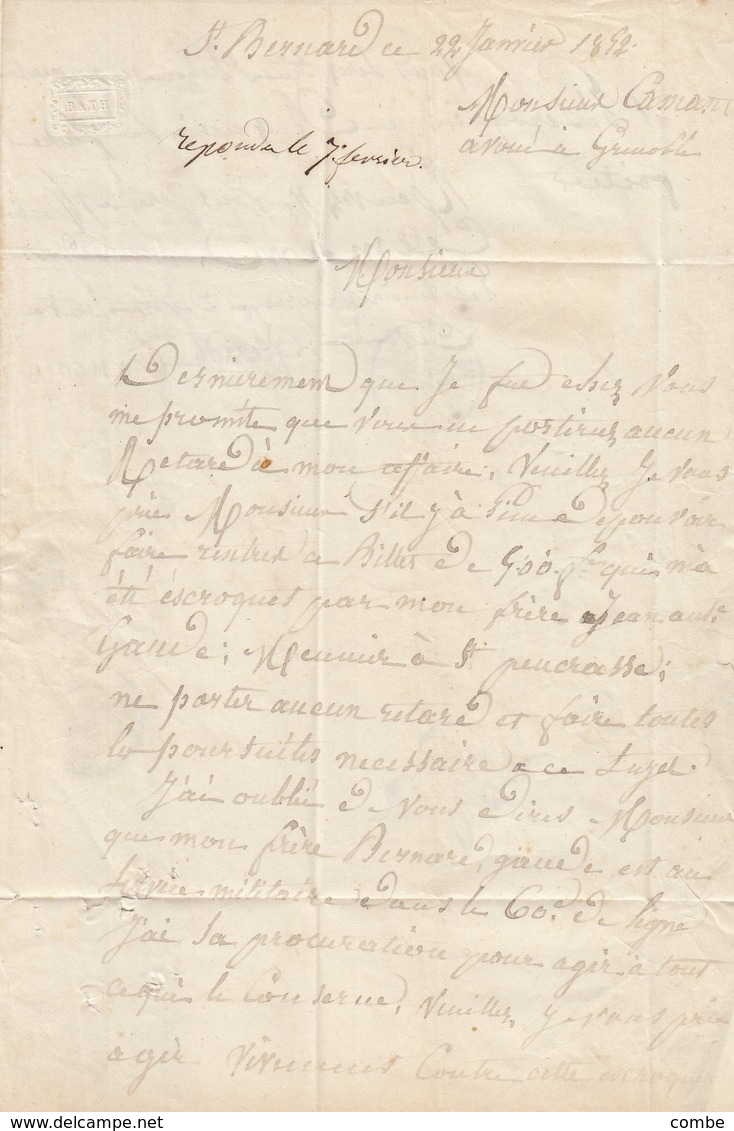 St. Bernard ce 22 Janvier 1852.
BATH
Monsieur Camand
avoué à Grenoble
repondu le 7 fevrier.
Monsieur
Dernierement que Je fue chez Vous
me promite que Vous ne porteriez aucun
Retard à mon affaire, Veuillez Je vous
prie Monsieur s'il y à lieu de pouvoir
faire rentrer ce Billet de 500 fr qui m'a
été éscroquet par mon frère Jean ante
Gaude, Meunier à St. pencrasse;
ne porter aucun retard et faire toutes
les poursuites necessaire a ce Sujet.
J'ai oublié de Vous dires Monsieur
que mon frère Bernard gaude est au
Service militaire dans le 60e de ligne
J'ai Sa procuration pour agir à tout
ce qui le Conserne, Veuillez Je vous prie
agir Vivement Contre cette escroquerie
combe